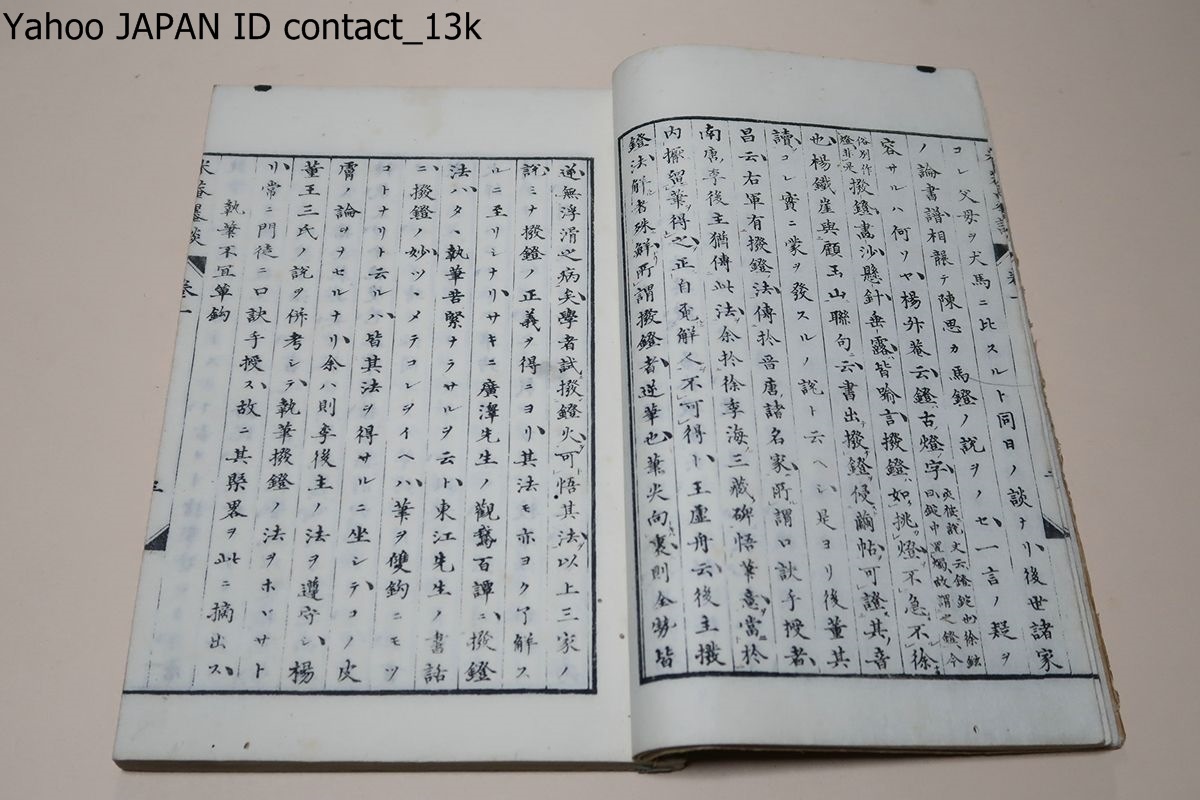 Yahoo JAPAN ID contact_13k
コレ父母ヲ犬馬ニ比スルト同日ノ談ナリ後世諸家
ノ論書譜相讓テ陳思カ馬鐙ノ説ヲノセ一言ノ疑ヲ
容サルハ何ソヤ楊升菴云鐙古燈字
俗別作
燈非是
撥鐙畫沙懸針垂露皆喻言撥鐙如挑燈不急不徐
也楊鐵崖與顧玉山聯句云書出撥鐙侵繭帖可證其音
讀コレ實ニ蒙ヲ發スルノ説ト云ヘシ是ヨリ後董其
昌云右軍有撥鐙法傳於晋唐諸名家所謂口訣手授者
南唐李後主猶傳此法余於徐季海三藏碑悟筆意當於
内擫留筆得之正自兎解人不可得ト王虚舟云後主撥
鐙法解者殊鮮所謂撥鐙者逆筆也筆尖向裏則全勢皆
逆無浮滑之病矣學者試撥鐙火可悟其法以上三家ノ
説ミナ撥鐙ノ正義ヲ得ニヨリ其法モ亦ヨク了解ス
ルニ至リシナリサキニ廣澤先生ノ觀鵞百譚ニ撥鐙
法ハタヽ執筆苦緊ナラサルヲ云ト東江先生ノ書話
ニ撥鐙ノ妙ツヽメテコレヲイヘハ筆ヲ雙鈎ニモツ
コトナリト云ルハ皆其法ヲ得サルニ坐シテコノ皮
膚ノ論ヲナセルナリ余ハ則李後主ノ法ヲ遵守シ楊
董王三氏ノ説ヲ併考シテ執筆撥鐙ノ法ヲホドサト
リ常ニ門徒ニ口訣手授ス故ニ其槩畧ヲ此ニ摘出ス
執筆不宜單鈎
米菴墨談
卷一
三